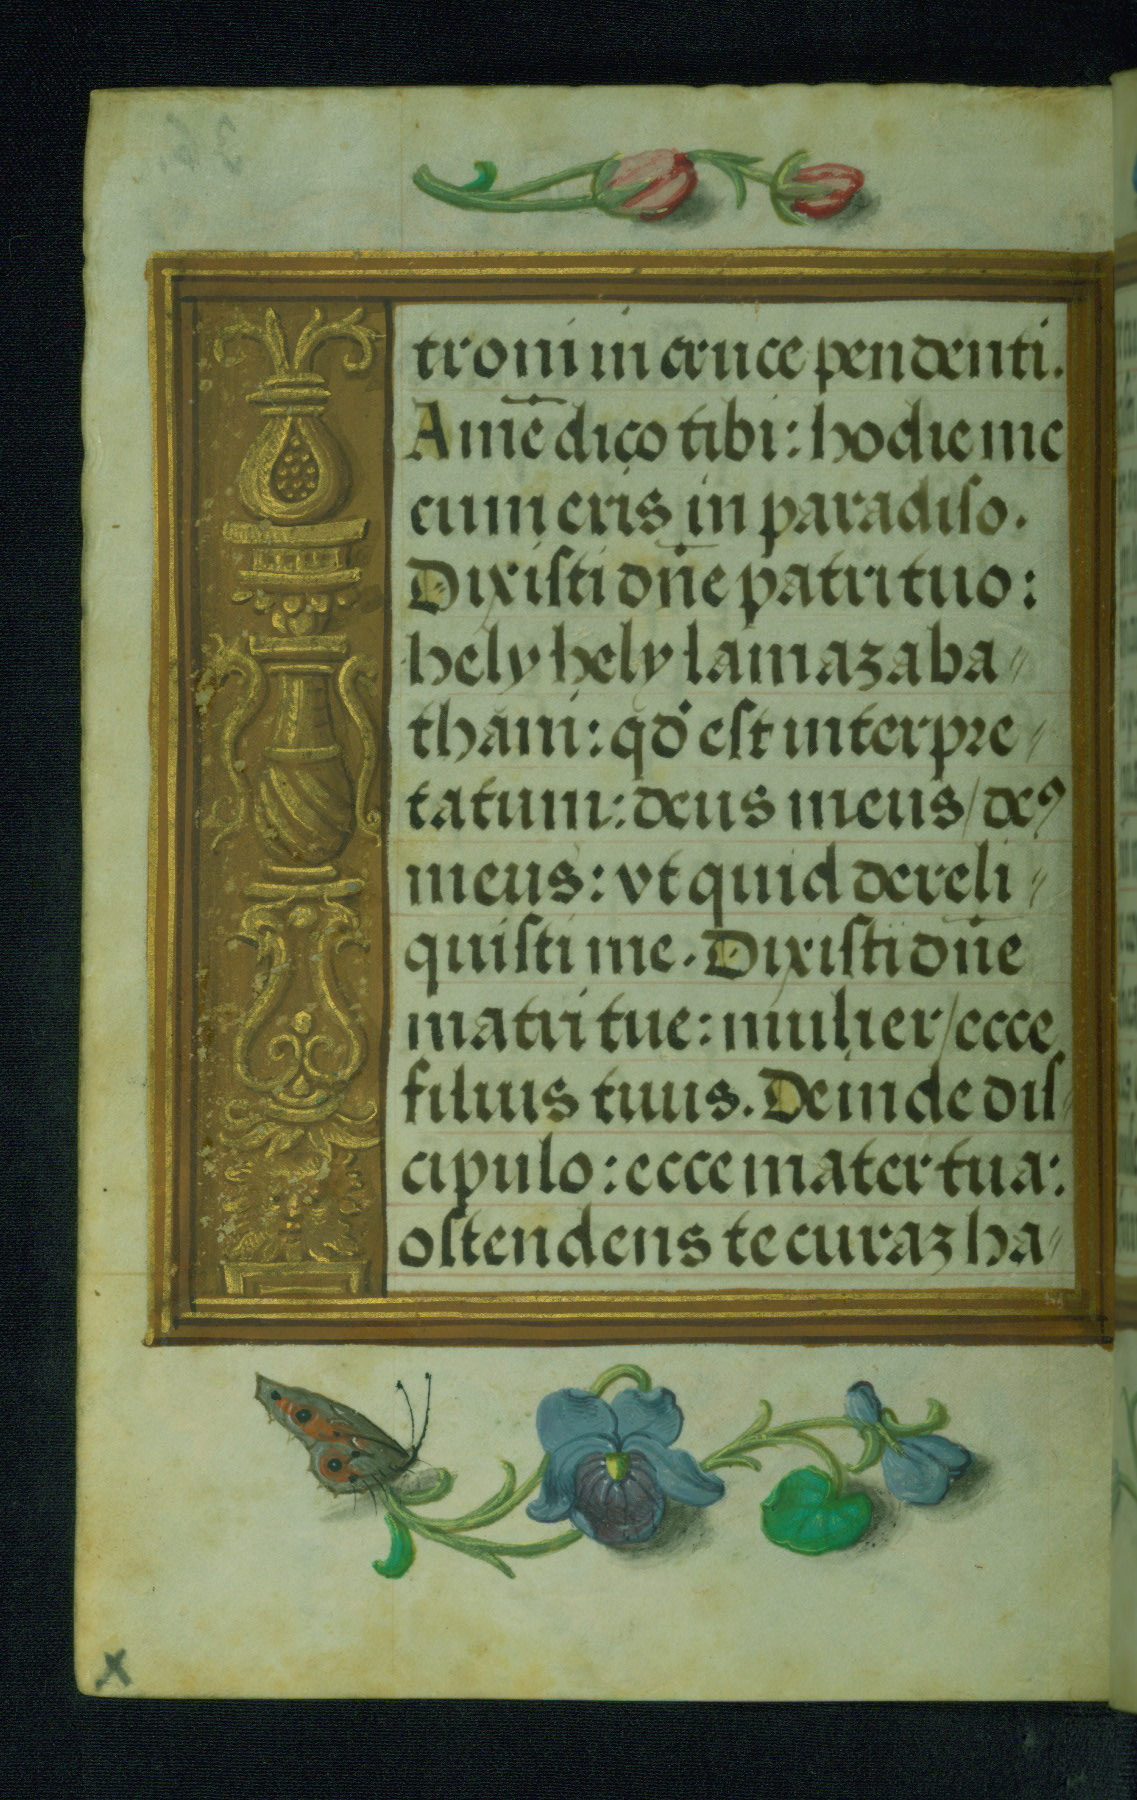 troni in cruce pendenti.
Amē dico tibi: hodie me
cum eris in paradiso.
Dixisti dn̄e patri tuo:
hely hely lamazaba〃
thani: qd̓ est interpre〃
tatum: deus meus/ deꝰ
meus: vt quid dereli〃
quisti me. Dixisti dn̄e
matri tue: mulier/ecce
filius tuus. Deinde dis〃
cipulo: ecce mater tua:
ostendens te curaz ha〃
x